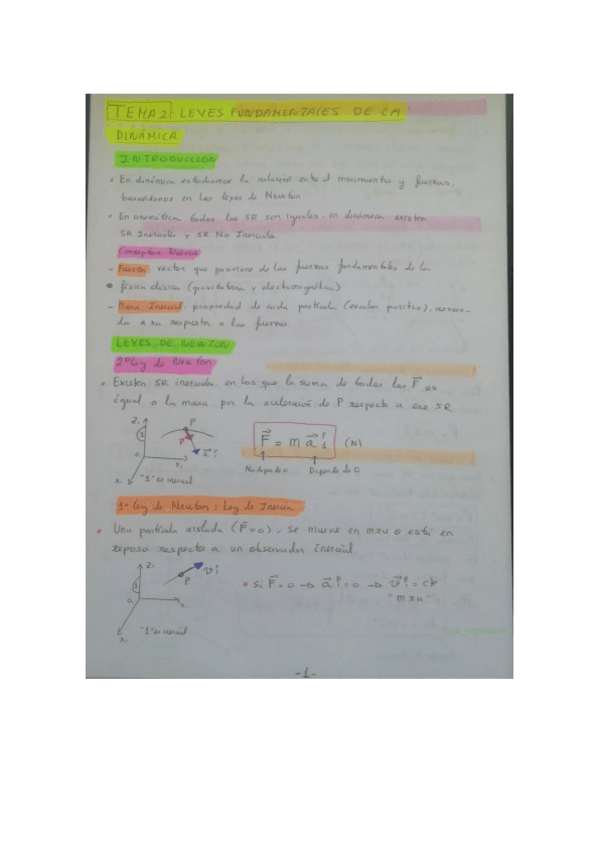 TEMA 2. LEYES FUNDAMENTALES DE LA
DINÁMICA
INTRODUCCIÓN
• En dinámica estudiamos la relación entre el movimiento y fuerzas,
basándonos en las leyes de Newton.
• En cinemática todos los SR son iguales, en dinámica existen
SR Inerciales y SR No Inerciales
Conceptos Nuevos
- Fuerza: vector que proviene de las fuerzas fundamentales de la
física clásica (gravitatoria y electromagnética)
- Masa Inercial: propiedad de cada partícula (escalar positivo), asocia-
da a su respuesta a las fuerzas.
LEYES DE NEWTON
2ª Ley de Newton
• Existen SR inerciales, en los que la suma de todas las F⃗ es
igual a la masa por la aceleración de P respecto a ese SR
Z₁ P
1 F⃗
O₁ Y₁ a⃗ᴾ₁
X₁ "1" es inercial
F⃗ = m a⃗ᴾ₁ (N)
No depende O Depende de O
1ª Ley de Newton: Ley de Inercia
• Una partícula aislada (F⃗=0), se mueve en mru o está en
reposo respecto a un observador inercial.
Z₁ v⃗ᴾ₁
1 P
O₁ Y₁
X₁ "1" es inercial
• Si F⃗ = 0 → a⃗ᴾ₁ = 0 → v⃗ᴾ₁ = cte
"mru"
-1-